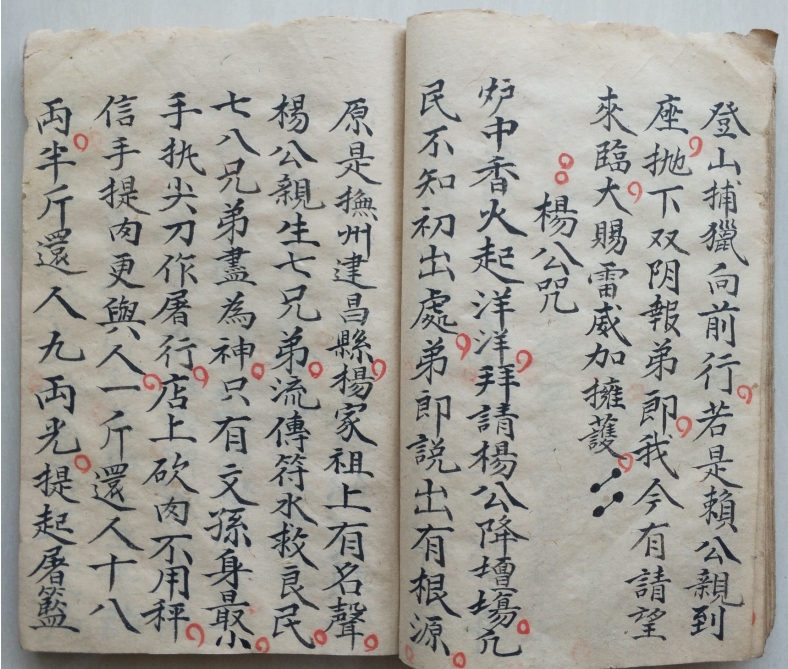 登山捕獵向前行若是賴公親到
座抛下双阴報弟郎我今有請望
來臨大賜雷威加擁護
楊公咒
炉中香火起洋洋拜請楊公降壇場凢
民不知初出處弟郎説出有根源
原是撫州建昌縣楊家祖上有名聲
楊公親生七兄弟流傳符水救良民
七八兄弟盡為神只有文孫身最小
手执尖刀作屠行店上砍肉不用秤
信手提肉更與人一斤還人十八
両半斤還人九両光提起屠籃